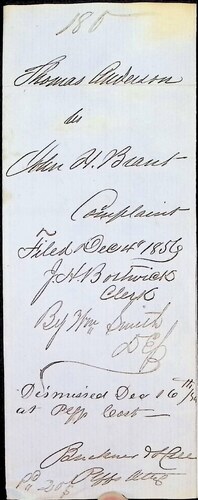 180
Thomas Anderson
vs
John H. Brant
Complaint
Filed Dec 4th 1856
J. H. Bostwick
Clerk
By Wm Smith
D C
Dismissed Dec 16th /56
at Plffs Cost
Buckner &
Plffs Attys